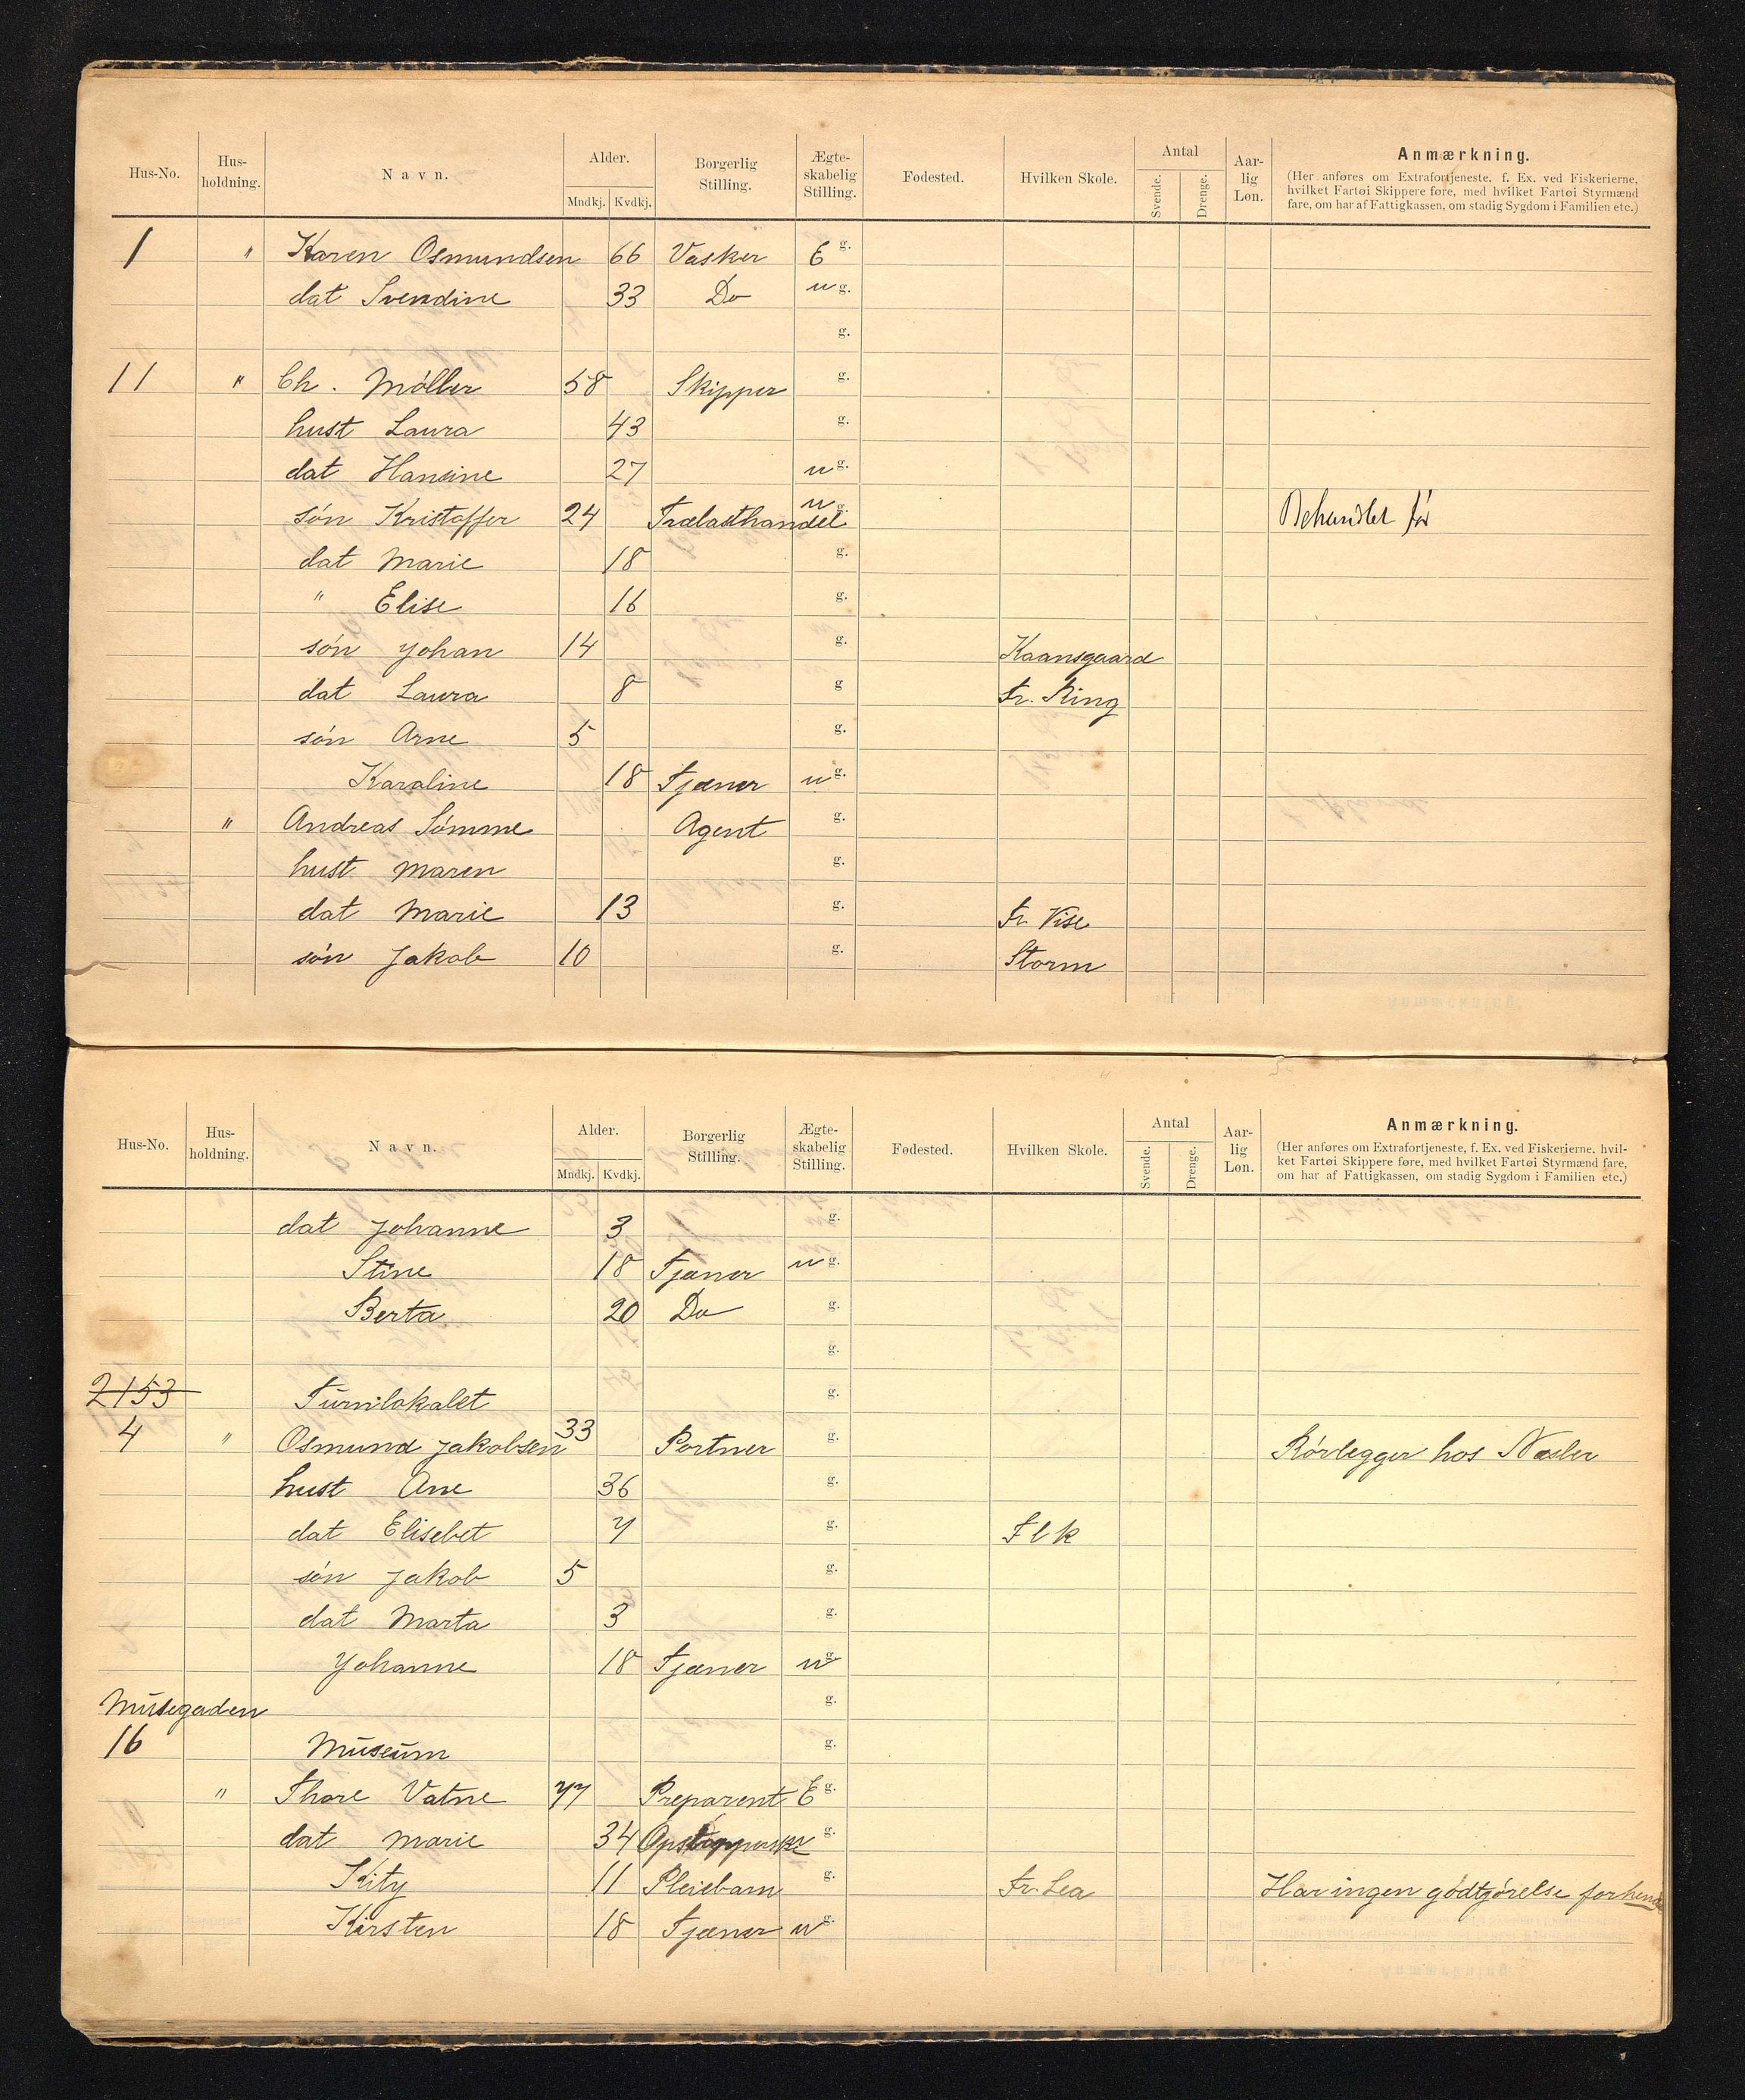 Hus-No. Hus-holdning. Navn. Alder. Mndkj. Kvdkj. Borgerlig Stilling. Ægte-skabelig Stilling. Fødested. Hvilken Skole. Antal Svende. Drenge. Aar-lig Løn. Anmærkning.
(Her anføres om Extrafortjeneste, f. Ex. ved Fiskerierne, hvilket Fartøi Skippere føre, med hvilket Fartøi Styrmænd fare, om har af Fattigkassen, om stadig Sygdom i Familien etc.)
1 " Karen Osmundsen 66 Vasker E g.
dat Svendine 33 Do u g.
g.
11 " Ch. Møller 58 Skipper g.
hust Laura 43 g.
dat Hansine 27 u g.
søn Kristoffer 24 Trælasthandel u g. Behandlet før
dat Marie 18 g.
" Elise 16 g.
søn Johan 14 g. Kaansgaard
dat Laura 8 g Fr. Ring
søn Arne 5 g.
Karaline 18 Tjener u g.
" Andreas Sømme Agent g.
hust Maren g.
dat Marie 13 g. Fr. Vise
søn Jakob 10 g. Storm
Hus-No. Hus-holdning. Navn. Alder. Mndkj. Kvdkj. Borgerlig Stilling. Ægte-skabelig Stilling. Fødested. Hvilken Skole. Antal Svende. Drenge. Aar-lig Løn. Anmærkning.
(Her anføres om Extrafortjeneste, f. Ex. ved Fiskerierne, hvil-ket Fartøi Skippere føre, med hvilket Fartøi Styrmænd fare, om har af Fattigkassen, om stadig Sygdom i Familien etc.)
dat Johanne 3 g.
Stine 18 Tjener u g.
Berta 20 Do g.
g.
2153 Turnlokalet g.
4 " Osmund Jakobsen 33 Portner g. Rørlegger hos Næsler
hust Ane 36 g.
dat Elisebet 7 g. Flk
søn Jakob 5 g.
dat Marta 3 g.
Johanne 18 Tjener u g.
Musegaden g.
16 Museum g.
" Thore Vatne 77 Preparent E g.
dat Marie 34 Opstopperske g.
Kity 11 Pleiebarn g. Fr. Lea Har ingen godtgørelse for hende
Kirsten 18 Tjener u g.